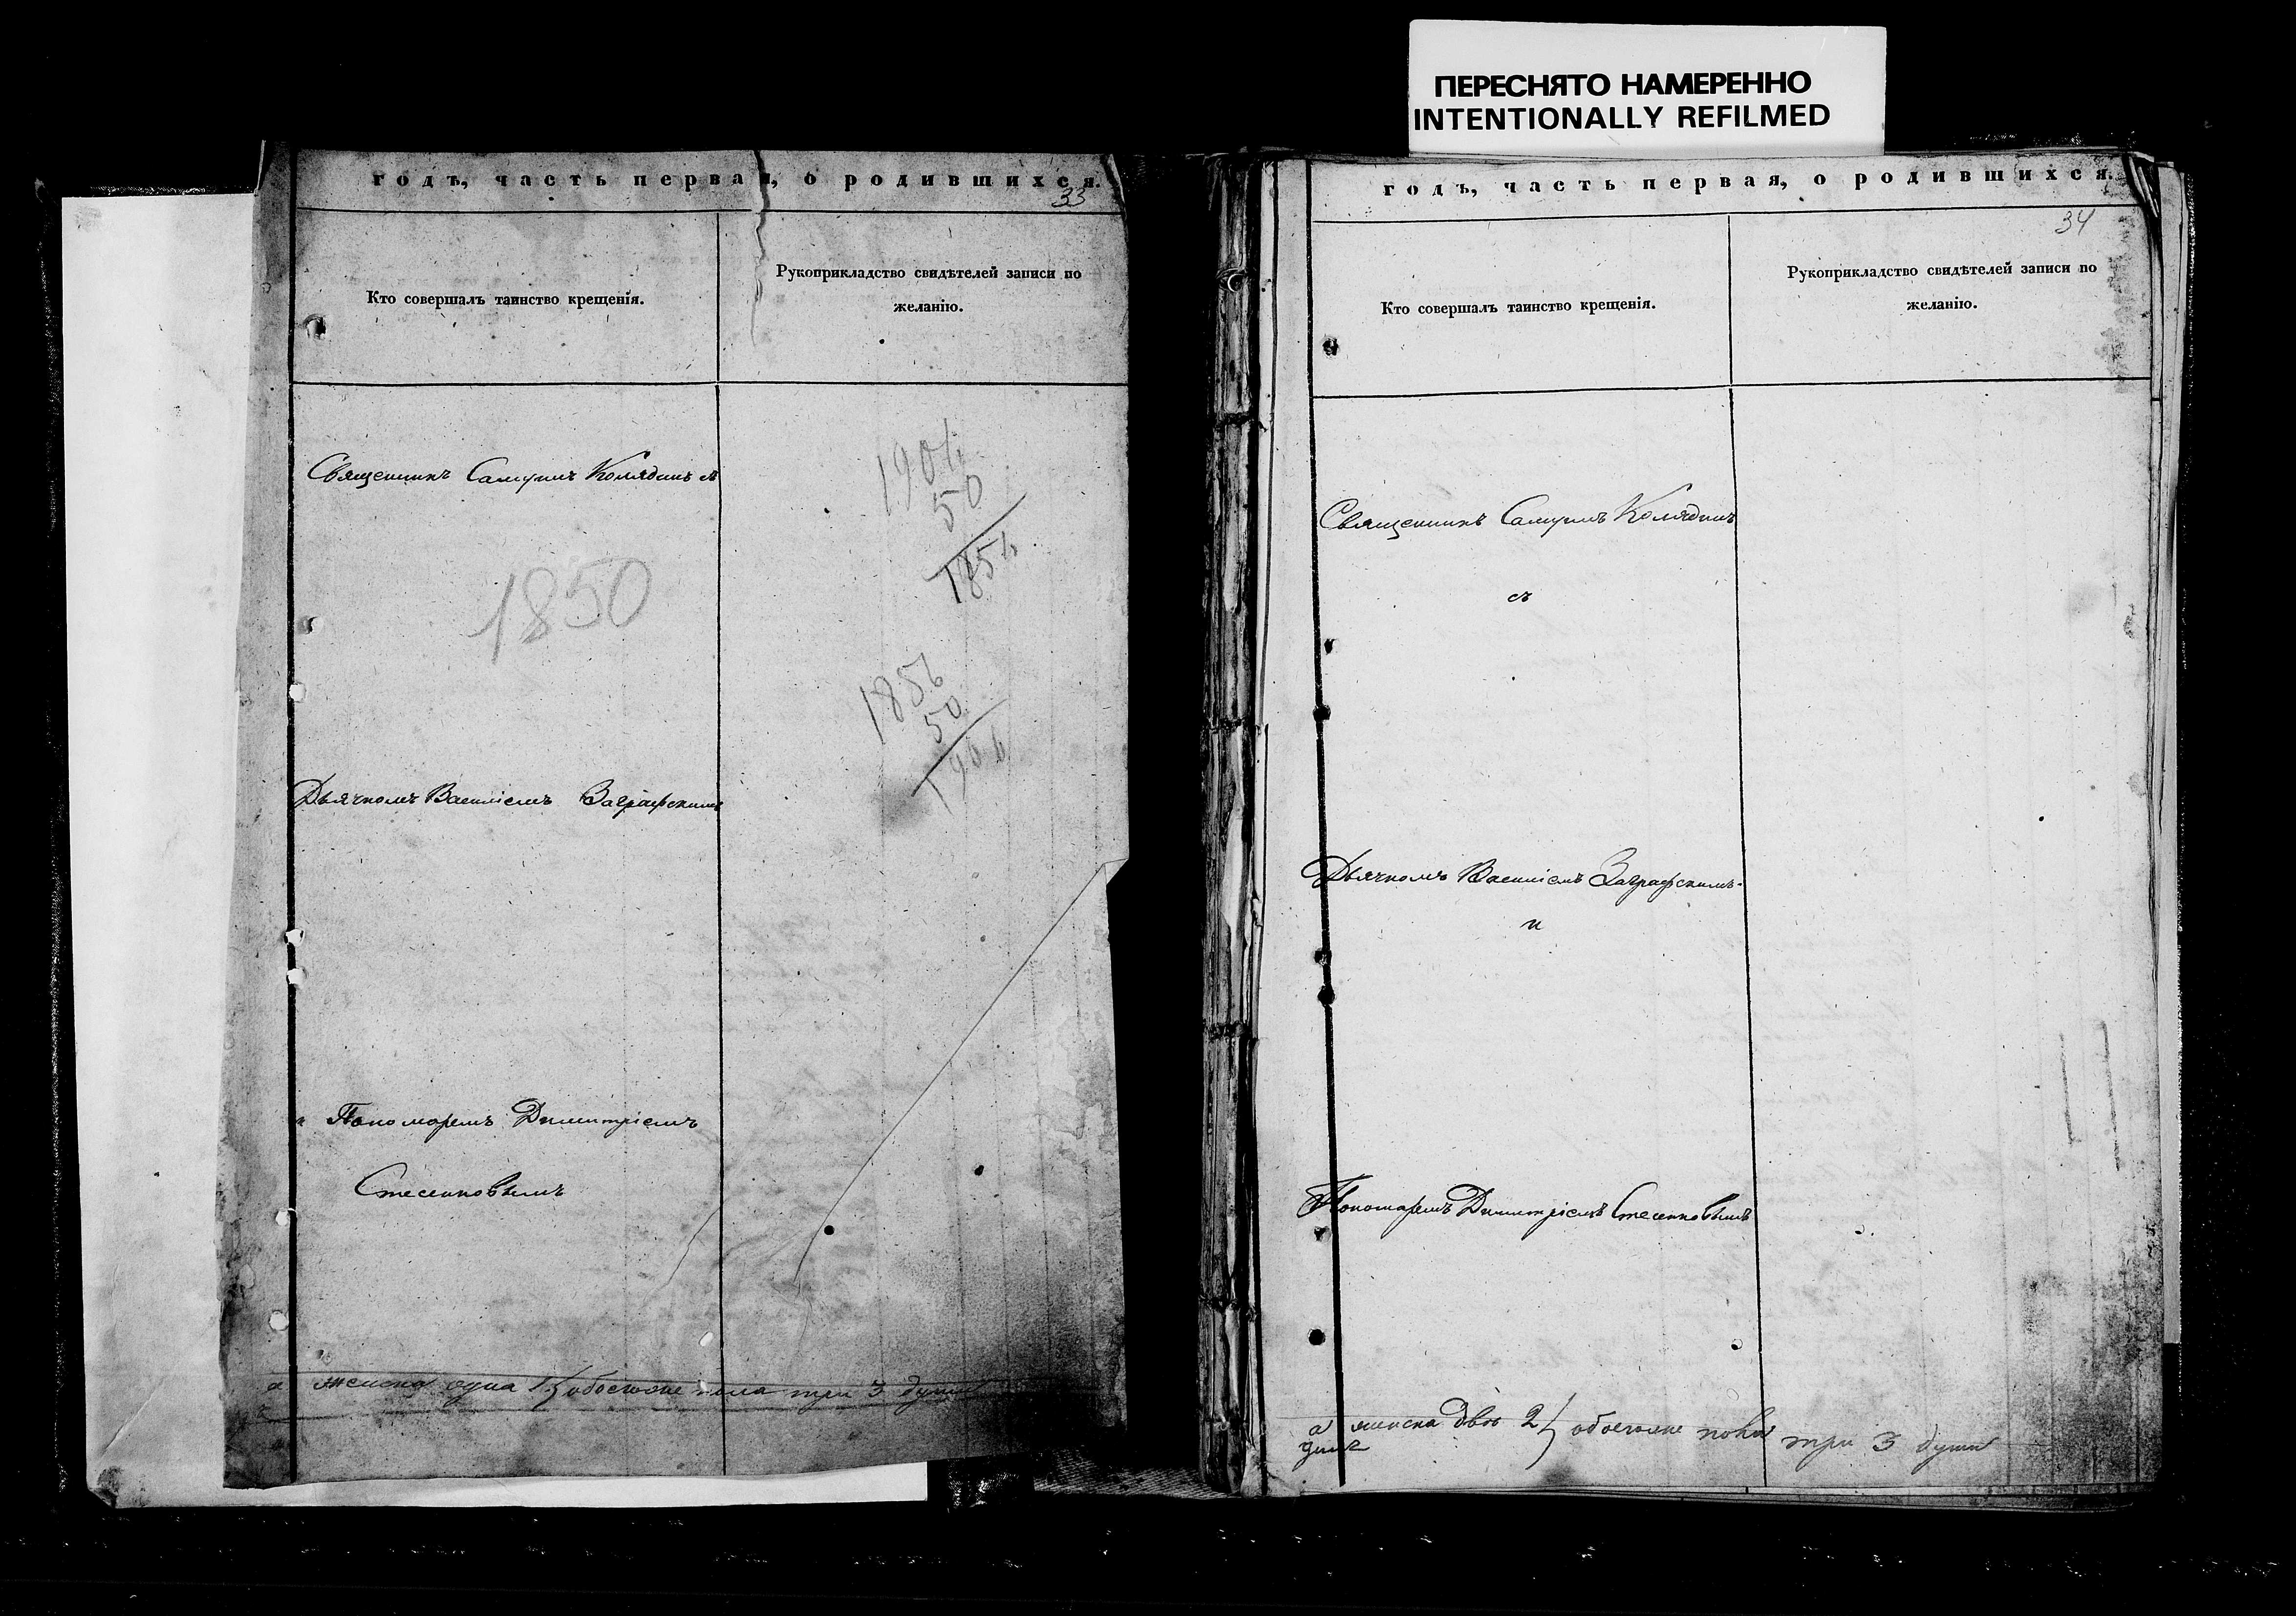 ПЕРЕСНЯТО НАМЕРЕННО
INTENTIONALLY REFILMED
годъ, часть первая, о родившихся.
33
Кто совершалъ таинство крещенія.
Рукоприкладство свидѣтелей записи по
желанію.
Священникъ Самуилъ Колядинъ съ
1850
1904
50
1854
1856
50
1906
Дьячкомъ Василіемъ Заграфскимъ
и Пономаремъ Димитріемъ
а женска одна 1 обоего три 3 души
годъ, часть первая, о родившихся.
34
Кто совершалъ таинство крещенія.
Рукоприкладство свидѣтелей записи по
желанію.
Священникъ Самуилъ Колядинъ
съ
Дьячкомъ Василіемъ Заграфскимъ
и
Пономаремъ Димитріемъ
а женска двѣ 2 обоего пола три 3 души